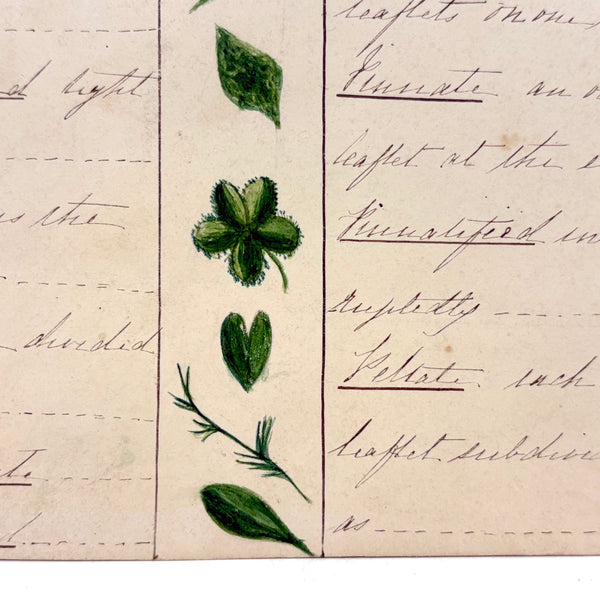 d right
s the
divided
ate
d
leaflets on one
Pinnate an o
leaflet at the e
Pinnatified in
ruptedly
Peltate each
leaflet subdivi
as